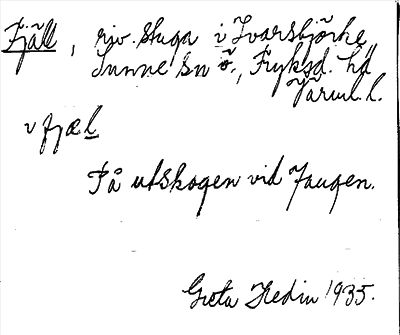 Fjäll, riv. stuga i Ivarsbjörke,
Sunne sn Ö., Fryksd. hd
Värml. l.
v fjæl
På utskogen vid Jangen.
Greta Hedin 1935.